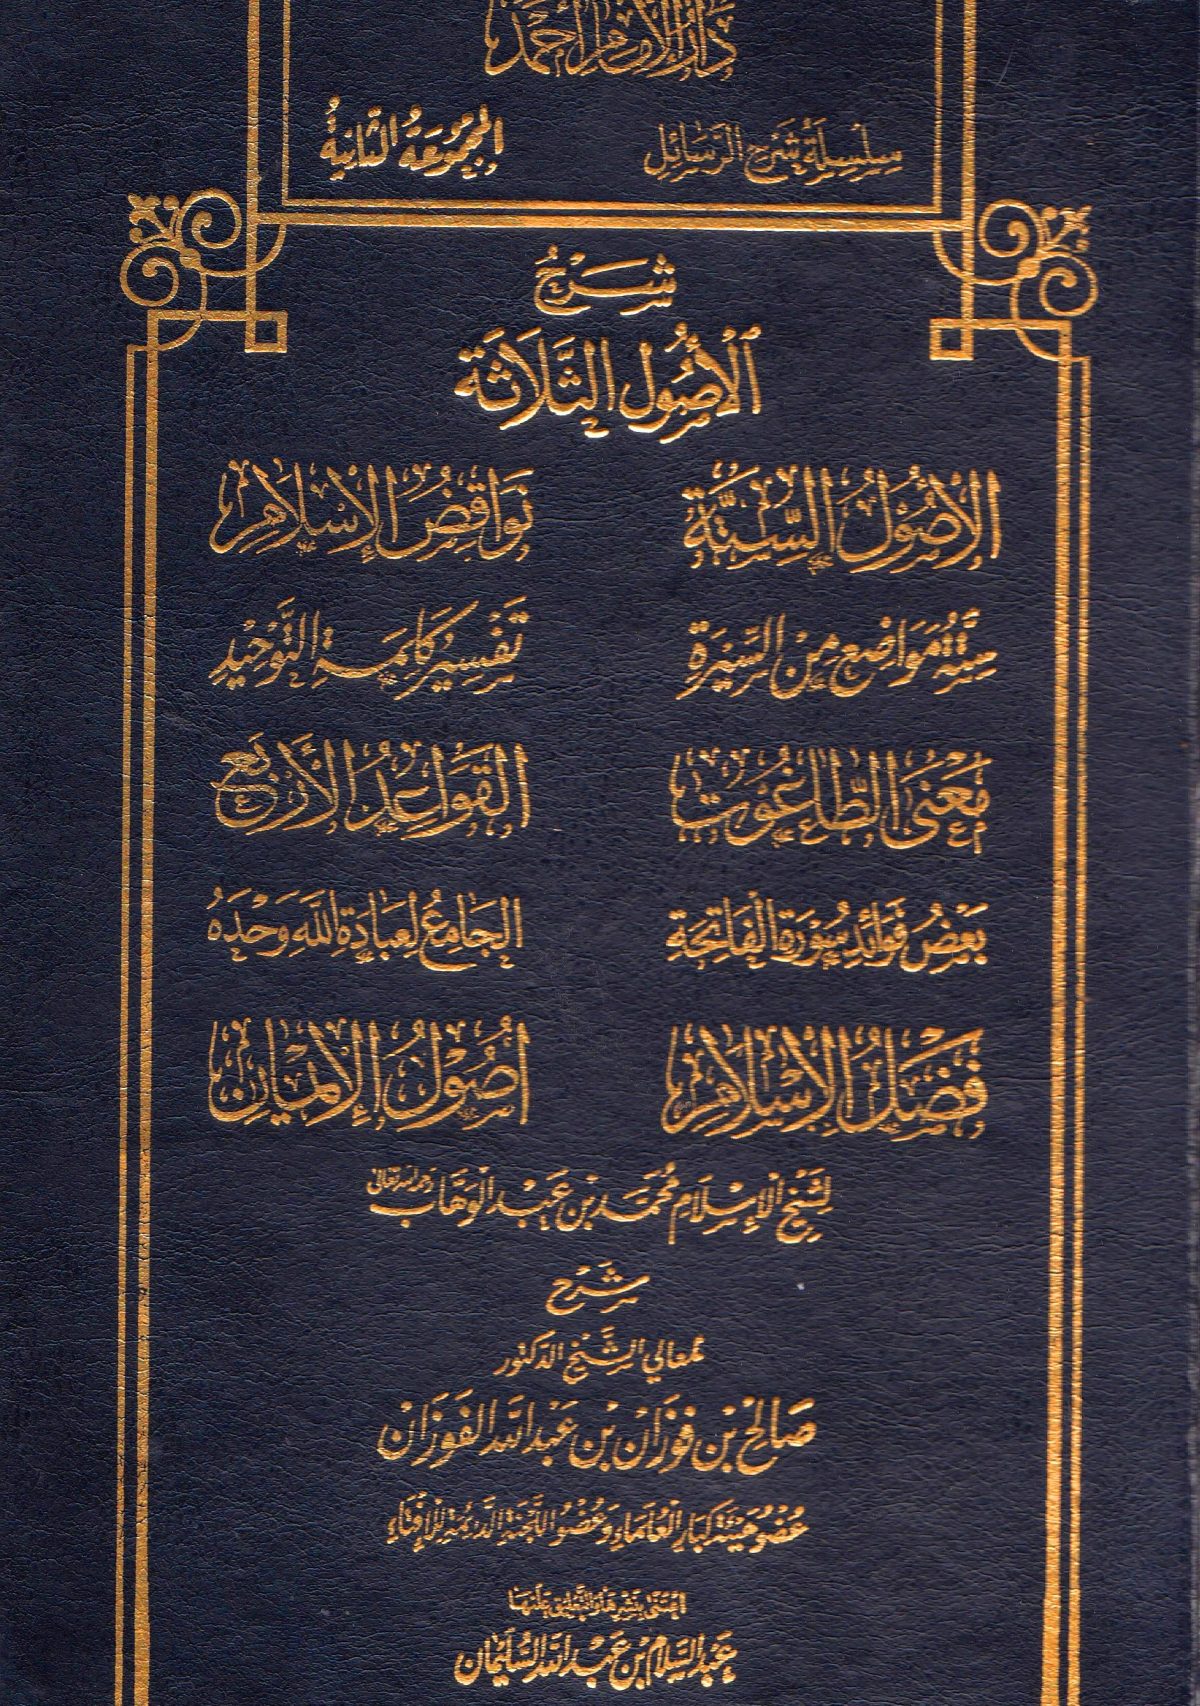 دَارُ الْإِمَامِ أَحْمَد
سِلْسِلَةُ شَرْحِ الرَّسَائِلِ المَجْمُوعَةُ الثَّانِيَةُ
شَرْحُ
الْأُصُولِ الثَّلَاثَة
الْأُصُولُ السِّتَّةُ نَوَاقِضُ الْإِسْلَامِ
سِتَّةُ مَوَاضِعَ مِنَ السِّيرَةِ تَفْسِيرُ كَلِمَةِ التَّوْحِيدِ
مَعْنَى الطَّاغُوتِ القَوَاعِدُ الْأَرْبَعُ
بَعْضُ فَوَائِدِ سُورَةِ الْفَاتِحَةِ الجَامِعُ لِعِبَادَةِ اللَّهِ وَحْدَهُ
فَضْلُ الْإِسْلَامِ أُصُولُ الْإِيمَانِ
لِشَيْخِ الْإِسْلَامِ مُحَمَّد بْنِ عَبْدِ الْوَهَّابِ رحمه الله تعالى
شَرَح
لمعالي الشَّيْخِ الدكتور
صَالِح بْن فَوْزَان بْن عَبْدِ اللَّه الفَوْزَان
عُضْو هَيْئَة كِبَارِ الْعُلَمَاءِ وَعُضْو اللَّجْنَةِ الدَّائِمَةِ لِلْإِفْتَاءِ
اعْتَنَى بِنَشْرِهَا وَالتَّعْلِيقِ عَلَيْهَا
عَبْدُ السَّلَامِ بْن عَبْدِ اللَّه السُّلَيْمَان